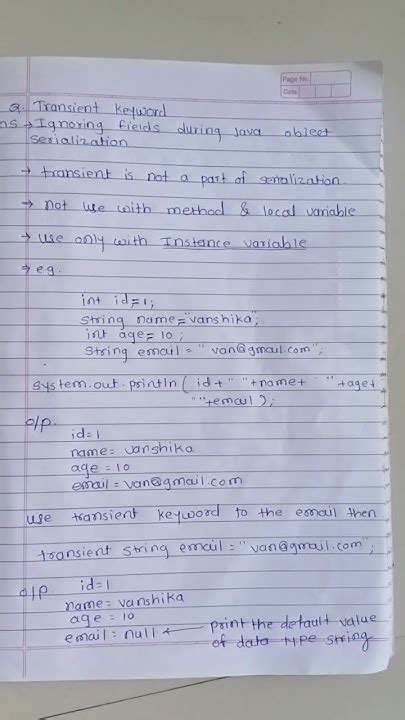 Page No.
Date
Q. Transient keyword
ns → Ignoring fields during java object
serialization
→ transient is not a part of serialization.
→ not use with method & local variable
→ use only with Instance variable
→ eg.
int id=1;
string name="vanshika";
int age=10;
string email = "van@gmail.com";
system.out.println( id+" "+name+" "+age+
" "+email);
o/p.
id=1
name= vanshika
age = 10
email = van@gmail.com
use transient keyword to the email then
transient string email="van@gmail.com";
o/p. id=1
name= vanshika
age = 10
email = null ← print the default value
of data type string